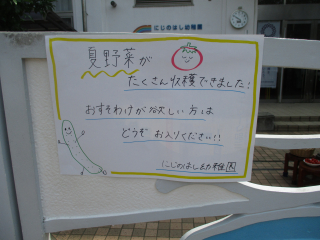 にじのはし幼稚園
夏野菜が
たくさん収穫できました!
おすそわけが欲しい方は
どうぞ お入りください!!
にじのはし幼稚園